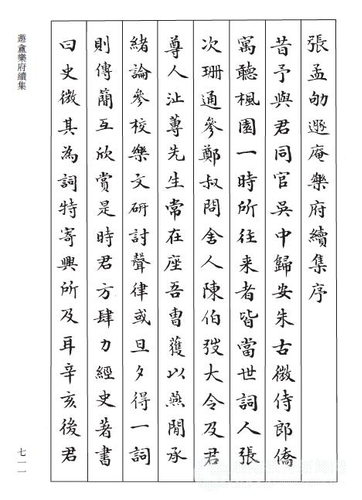 張孟劬遯庵樂府續集序
昔予與君同官吳中歸安朱古微侍郎僑
寓聽楓園一時所往来者皆當世詞人張
次珊通參鄭叔問舍人陳伯弢大令及君
尊人沚蓴先生常在座吾曹獲以燕閒承
緒論參校樂文研討聲律或旦夕得一詞
則傳簡互欣賞是時君方肆力經史著書
曰史微其為詞特寄興所及耳辛亥後君
遯盦樂府續集
七一一